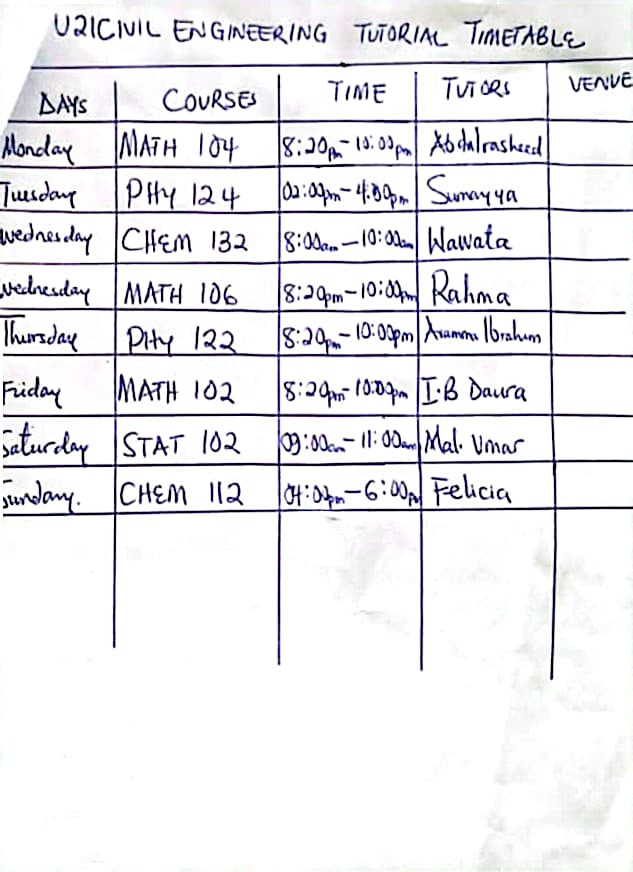 U21CIVIL ENGINEERING TUTORIAL TIMETABLE
DAYS COURSES TIME TUTORS VENUE
Monday MATH 104 8:20pm-10:00pm Abdulrasheed
Tuesday PHY 124 02:00pm-4:00pm Sumayya
Wednesday CHEM 132 8:00am-10:00am Wawata
Wednesday MATH 106 8:20pm-10:00pm Rahma
Thursday PHY 122 8:20pm-10:00pm Ibrahim
Friday MATH 102 8:20pm-10:00pm I.B Daura
Saturday STAT 102 09:00am-11:00am Mal. Umar
Sunday. CHEM 112 04:00pm-6:00pm Felicia